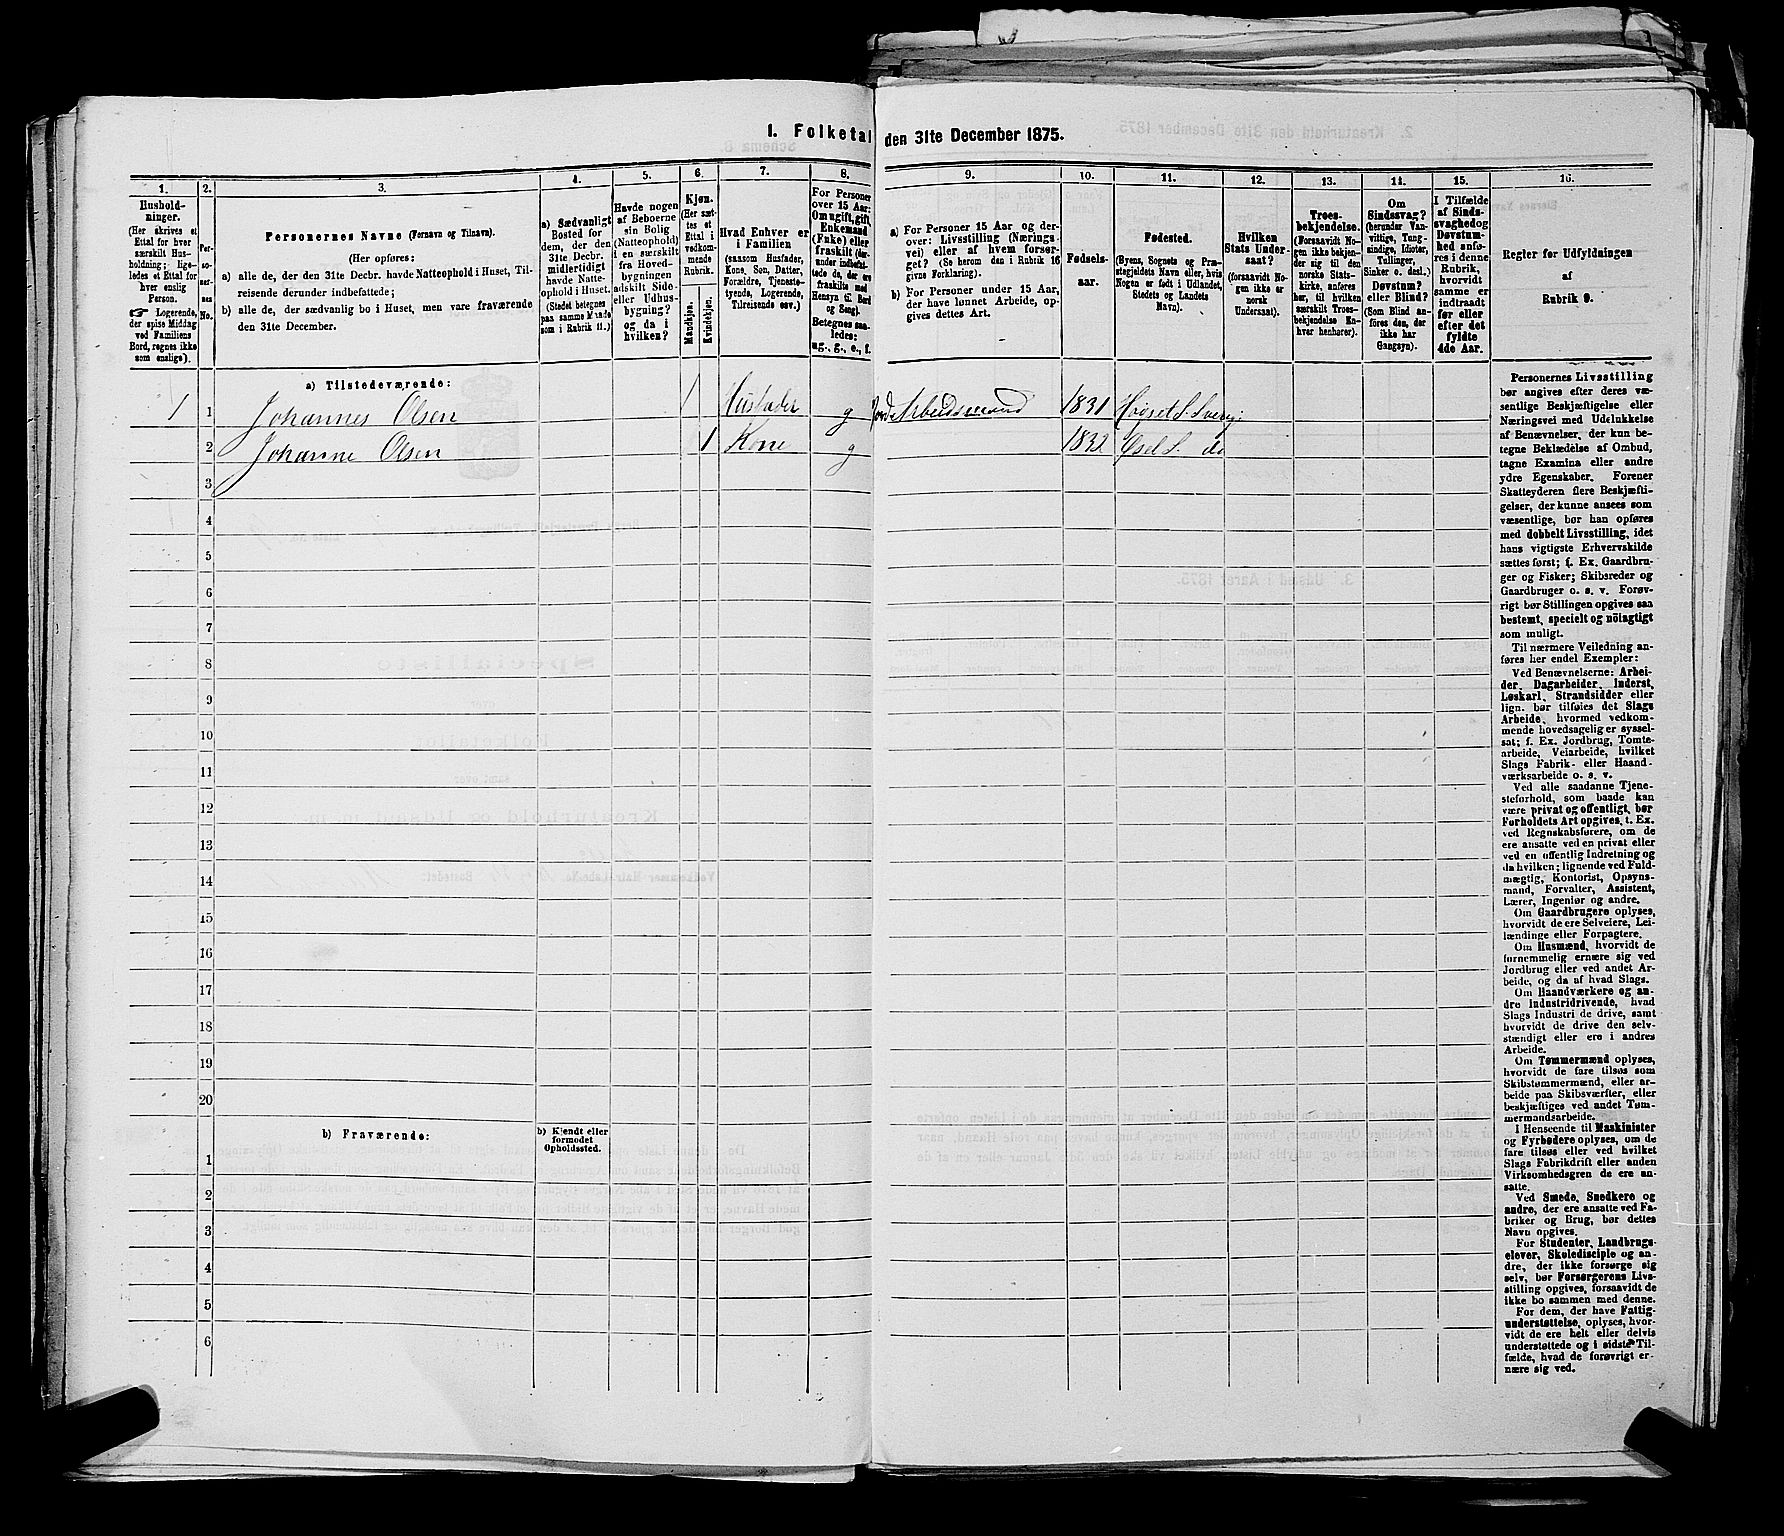 1. Folketal den 31te December 1875.
1.
2.
3.
4.
5.
6.
7.
8.
9.
10.
11.
12.
13.
14.
15.
16.
Hushold-
ninger.
(Her skrives et
Ettal for hver
særskilt Hus-
holdning; lige-
ledes et Ettal for
hver enslig
Person.
☞ Logerende,
der spise Middag
ved Familiens
Bord, regnes ikke
som enslige).
Per-
so-
ner-
nes
No.
Personernes Navne (Fornavn og Tilnavn).
(Her opføres:
a) alle de, der den 31te Decbr. havde Natteophold i Huset, Til-
reisende derunder indbefattede;
b) alle de, der sædvanlig bo i Huset, men vare fraværende
den 31te December.
a) Sædvanligt
Bosted for
dem, der den
31te Decbr.
midlertidigt
havde Natte-
ophold i Huset.
(Stedet betegnes
paa samme Maade
som i Rubrik 11.)
Havde nogen
af Beboerne
sin Bolig
(Natteophold)
i en særskilt
fra Hoved-
bygningen
adskilt Side-
eller Udhus-
bygning?
og da i
hvilken?
Kjøn.
(Her sæt-
tes et
Ettal i
vedkom-
mende
Rubrik.
Mandkjøn.
Kvindekjøn.
Hvad Enhver er
i Familien
(saasom Husfader,
Kone, Søn, Datter,
Forældre, Tjeneste-
tyende, Logerende,
Tilreisende osv.)
For Personer
over 15 Aar:
Om ugift, gift,
Enkemand
(Enke) eller
fraskilt (der-
under indbefat-
tede de, der ere
fraskilte med
Hensyn til Bord
og Seng).
Betegnes saa-
ledes:
ug., g., e., f.
a) For Personer 15 Aar og der-
over: Livsstilling (Nærings-
vei) eller af hvem forsør-
get? (Se herom den i Rubrik 16
givne Forklaring).
b) For Personer under 15 Aar,
der have lønnet Arbeide, op-
gives dettes Art.
Fødsels-
aar.
Fødested.
(Byens, Sognets og Præ-
stegjeldets Navn eller, hvis
Nogen er født i Udlandet,
Stedets og Landets
Navn).
Hvilken
Stats Under-
saat?
(forsaavidt No-
gen ikke er
norsk
Undersaat).
Troes-
bekjendelse.
(Forsaavidt No-
gen ikke bekjen-
der sig til den
norske Stats-
kirke, anføres
her, til hvilken
særskilt Troes-
bekjendelse En-
hver henhører).
Om
Sindssvag?
(herunder Van-
vittige, Tung-
sindige, Idioter,
Tullinger,
Sinker o. desl.)
Døvstum?
eller Blind?
(Som Blind an-
føres den, der
ikke har
Gangsyn).
I Tilfælde
af Sinds-
svaghed og
Døvstum-
hed anfø-
res i denne
Rubrik,
hvorvidt
samme er
indtraadt
før eller
efter det
fyldte
4de Aar.
Regler for Udfyldningen
af
Rubrik 9.
a) Tilstedeværende:
1 1 Johannes Olsen 1 Husfader g Arbeidsmand 1831
2 Johanne Olsen 1 Kone g 1832 do
3
4
5
6
7
8
9
10
11
12
13
14
15
16
17
18
19
20
b) Fraværende:
b) Kjendt eller
formodet
Opholdssted.
1
2
3
4
5
6
Personernes Livsstilling
bør angives efter deres væ-
sentlige Beskjæftigelse eller
Næringsvei med Udelukkelse
af Benævnelser, der kun be-
tegne Beklædelse af Ombud,
tagne Examina eller andre
ydre Egenskaber. Forener
Skatteyderen flere Beskjæfti-
gelser, der kunne ansees som
væsentlige, bør han opføres
med dobbelt Livsstilling, idet
hans vigtigste Erhvervskilde
sættes først; f. Ex. Gaardbru-
ger og Fisker; Skibsreder og
Gaardbruger o. s. v. Forøv-
rigt bør Stillingen opgives saa
bestemt, specielt og nöiagtigt
som muligt.
Til nærmere Veiledning an-
føres her endel Exempler:
Ved Benævnelserne: Arbei-
der, Dagarbeider, Inderst,
Løskarl, Strandsidder eller
lign. bør tilføies det Slags
Arbeide, hvormed vedkom-
mende hovedsagelig er syssel-
sat; f. Ex. Jordbrug, Tomte-
arbeide, Veiarbeide, hvilket
Slags Fabrik- eller Haand-
værksarbeide o. s. v.
Ved alle saadanne Tjene-
steforhold, som baade kan
være privat og offentligt, bør
Forholdets Art opgives, t. Ex.
ved Regnskabsførere, om de
ere ansatte ved en privat eller
ved en offentlig Indretning og
da hvilken; lignende ved Fuld-
mægtig, Kontorist, Opsyns-
mand, Forvalter, Assistent,
Lærer, Ingeniør og andre.
Om Gaardbrugere oplyses,
hvorvidt de ere Selveiere, Lei-
lændinge eller Forpagtere.
Om Husmænd, hvorvidt de
fornemmelig ernære sig ved
Jordbrug eller ved andet Ar-
beide, og da af hvad Slags.
Om Haandværkere og an-
dre Industridrivende, hvad
Slags Industri de drive, samt
hvorvidt de drive den selv-
stændigt eller ere i andres
Arbeide.
Om Tømmermænd oplyses,
hvorvidt de fare tilsøs som
Skibstømmermænd, eller ar-
beide paa Skibsværfter, eller
beskjæftiges ved andet Tøm-
mermandsarbeide.
I Henseende til Maskinister
og Fyrbødere oplyses, om de
fare tilsøs eller ved hvilket
Slags Fabrikdrift eller anden
Virksomhedsgren de ere an-
satte.
Ved Smede, Snedkere og
andre, der ere ansatte ved Fa-
briker og Brug, bør dettes
Navn opgives.
For Studenter, Landbrugs-
elever, Skoledisciple og an-
dre, der ikke forsørge sig
selv, bør Forsørgerens Livs-
stilling opgives, forsaavidt de
ikke bo sammen med denne.
For dem, der have Fattig-
understøttelse, oplyses, hvor-
vidt de ere helt eller delvis
understøttede og i sidste Til-
fælde, hvad de forøvrigt er-
nære sig ved.